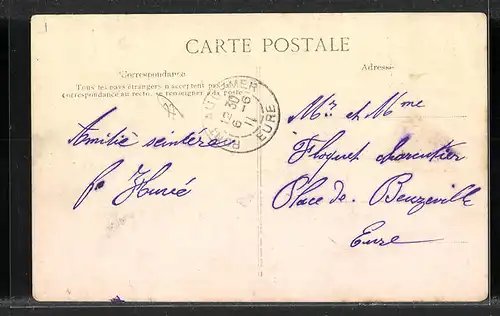 CARTE POSTALE
Correspondance
Adresse
Tous les pays étrangers n'acceptent pas la
correspondance au recto, se renseigner à la poste
PONT-AUDEMER
12 30
6 - 6
11
EURE
Amitié
Huvé
Mr et Mme
Floquet charcutier
Place de Beuzeville
Eure